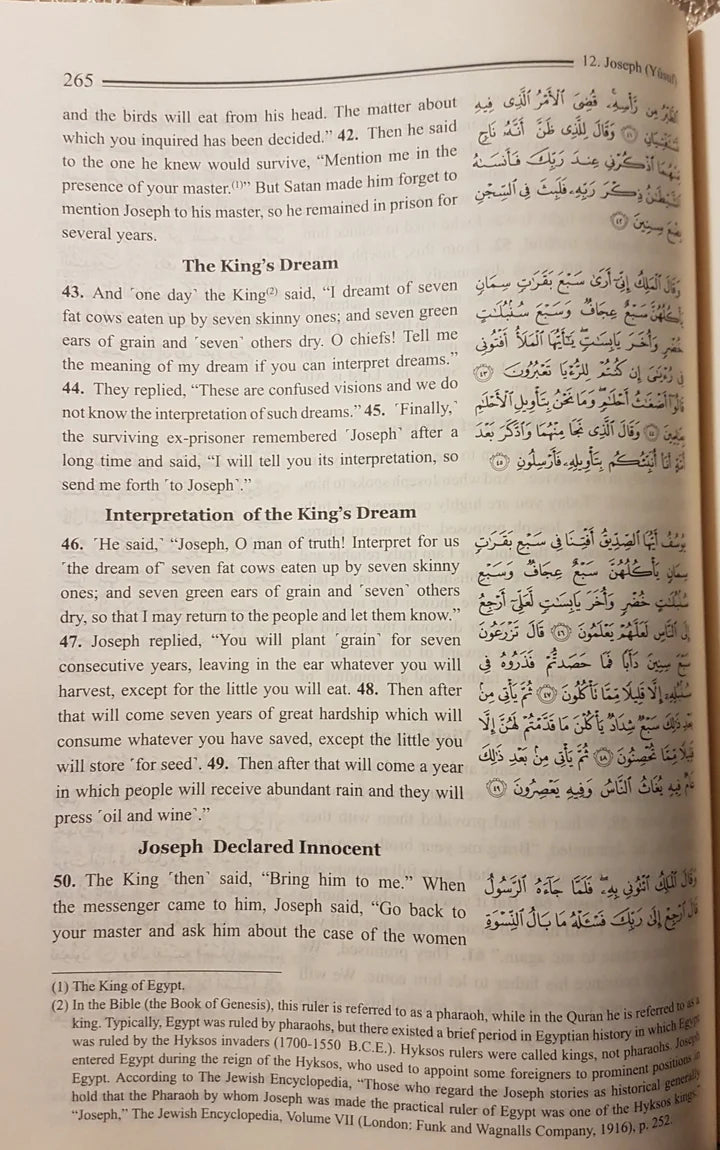 265
12. Joseph (Yûsuf)
and the birds will eat from his head. The matter about
which you inquired has been decided.” 42. Then he said
to the one he knew would survive, “Mention me in the
presence of your master.(1)” But Satan made him forget to
mention Joseph to his master, so he remained in prison for
several years.
The King’s Dream
43. And ˹one day˺ the King(2) said, “I dreamt of seven
fat cows eaten up by seven skinny ones; and seven green
ears of grain and ˹seven˺ others dry. O chiefs! Tell me
the meaning of my dream if you can interpret dreams.”
44. They replied, “These are confused visions and we do
not know the interpretation of such dreams.” 45. ˹Finally,˺
the surviving ex-prisoner remembered ˹Joseph˺ after a
long time and said, “I will tell you its interpretation, so
send me forth ˹to Joseph˺.”
Interpretation of the King’s Dream
46. ˹He said,˺ “Joseph, O man of truth! Interpret for us
˹the dream of˺ seven fat cows eaten up by seven skinny
ones; and seven green ears of grain and ˹seven˺ others
dry, so that I may return to the people and let them know.”
47. Joseph replied, “You will plant ˹grain˺ for seven
consecutive years, leaving in the ear whatever you will
harvest, except for the little you will eat. 48. Then after
that will come seven years of great hardship which will
consume whatever you have saved, except the little you
will store ˹for seed˺. 49. Then after that will come a year
in which people will receive abundant rain and they will
press ˹oil and wine˺.”
Joseph Declared Innocent
50. The King ˹then˺ said, “Bring him to me.” When
the messenger came to him, Joseph said, “Go back to
your master and ask him about the case of the women
ٱلطَّيْرُ مِن رَّأْسِهِۦ قُضِىَ ٱلْأَمْرُ ٱلَّذِى فِيهِ
تَسْتَفْتِيَانِ ٤١ وَقَالَ لِلَّذِى ظَنَّ أَنَّهُۥ نَاجٍ
مِّنْهُمَا ٱذْكُرْنِى عِندَ رَبِّكَ فَأَنسَىٰهُ
ٱلشَّيْطَٰنُ ذِكْرَ رَبِّهِۦ فَلَبِثَ فِى ٱلسِّجْنِ
بِضْعَ سِنِينَ ٤٢
وَقَالَ ٱلْمَلِكُ إِنِّىٓ أَرَىٰ سَبْعَ بَقَرَٰتٍ سِمَانٍ
يَأْكُلُهُنَّ سَبْعٌ عِجَافٌ وَسَبْعَ سُنۢبُلَٰتٍ
خُضْرٍ وَأُخَرَ يَابِسَٰتٍ يَٰٓأَيُّهَا ٱلْمَلَأُ أَفْتُونِى
فِى رُءْيَٰىَ إِن كُنتُمْ لِلرُّءْيَا تَعْبُرُونَ ٤٣
قَالُوٓا۟ أَضْغَٰثُ أَحْلَٰمٍ وَمَا نَحْنُ بِتَأْوِيلِ ٱلْأَحْلَٰمِ
بِعَٰلِمِينَ ٤٤ وَقَالَ ٱلَّذِى نَجَا مِنْهُمَا وَٱدَّكَرَ بَعْدَ
أُمَّةٍ أَنَا۠ أُنَبِّئُكُم بِتَأْوِيلِهِۦ فَأَرْسِلُونِ ٤٥
يُوسُفُ أَيُّهَا ٱلصِّدِّيقُ أَفْتِنَا فِى سَبْعِ بَقَرَٰتٍ
سِمَانٍ يَأْكُلُهُنَّ سَبْعٌ عِجَافٌ وَسَبْعِ
سُنۢبُلَٰتٍ خُضْرٍ وَأُخَرَ يَابِسَٰتٍ لَّعَلِّىٓ أَرْجِعُ
إِلَى ٱلنَّاسِ لَعَلَّهُمْ يَعْلَمُونَ ٤٦ قَالَ تَزْرَعُونَ
سَبْعَ سِنِينَ دَأَبًا فَمَا حَصَدتُّمْ فَذَرُوهُ فِى
سُنۢبُلِهِۦٓ إِلَّا قَلِيلًا مِّمَّا تَأْكُلُونَ ٤٧ ثُمَّ يَأْتِى مِنۢ
بَعْدِ ذَٰلِكَ سَبْعٌ شِدَادٌ يَأْكُلْنَ مَا قَدَّمْتُمْ لَهُنَّ إِلَّا
قَلِيلًا مِّمَّا تُحْصِنُونَ ٤٨ ثُمَّ يَأْتِى مِنۢ بَعْدِ ذَٰلِكَ
عَامٌ فِيهِ يُغَاثُ ٱلنَّاسُ وَفِيهِ يَعْصِرُونَ ٤٩
وَقَالَ ٱلْمَلِكُ ٱئْتُونِى بِهِۦ فَلَمَّا جَآءَهُ ٱلرَّسُولُ
قَالَ ٱرْجِعْ إِلَىٰ رَبِّكَ فَسْـَٔلْهُ مَا بَالُ ٱلنِّسْوَةِ
(1) The King of Egypt.
(2) In the Bible (the Book of Genesis), this ruler is referred to as a pharaoh, while in the Quran he is referred to as a
king. Typically, Egypt was ruled by pharaohs, but there existed a brief period in Egyptian history in which Egypt
was ruled by the Hyksos invaders (1700-1550 B.C.E.). Hyksos rulers were called kings, not pharaohs. Joseph
entered Egypt during the reign of the Hyksos, who used to appoint some foreigners to prominent positions in
Egypt. According to The Jewish Encyclopedia, “Those who regard the Joseph stories as historical generally
hold that the Pharaoh by whom Joseph was made the practical ruler of Egypt was one of the Hyksos kings.”
“Joseph,” The Jewish Encyclopedia, Volume VII (London: Funk and Wagnalls Company, 1916), p. 252.